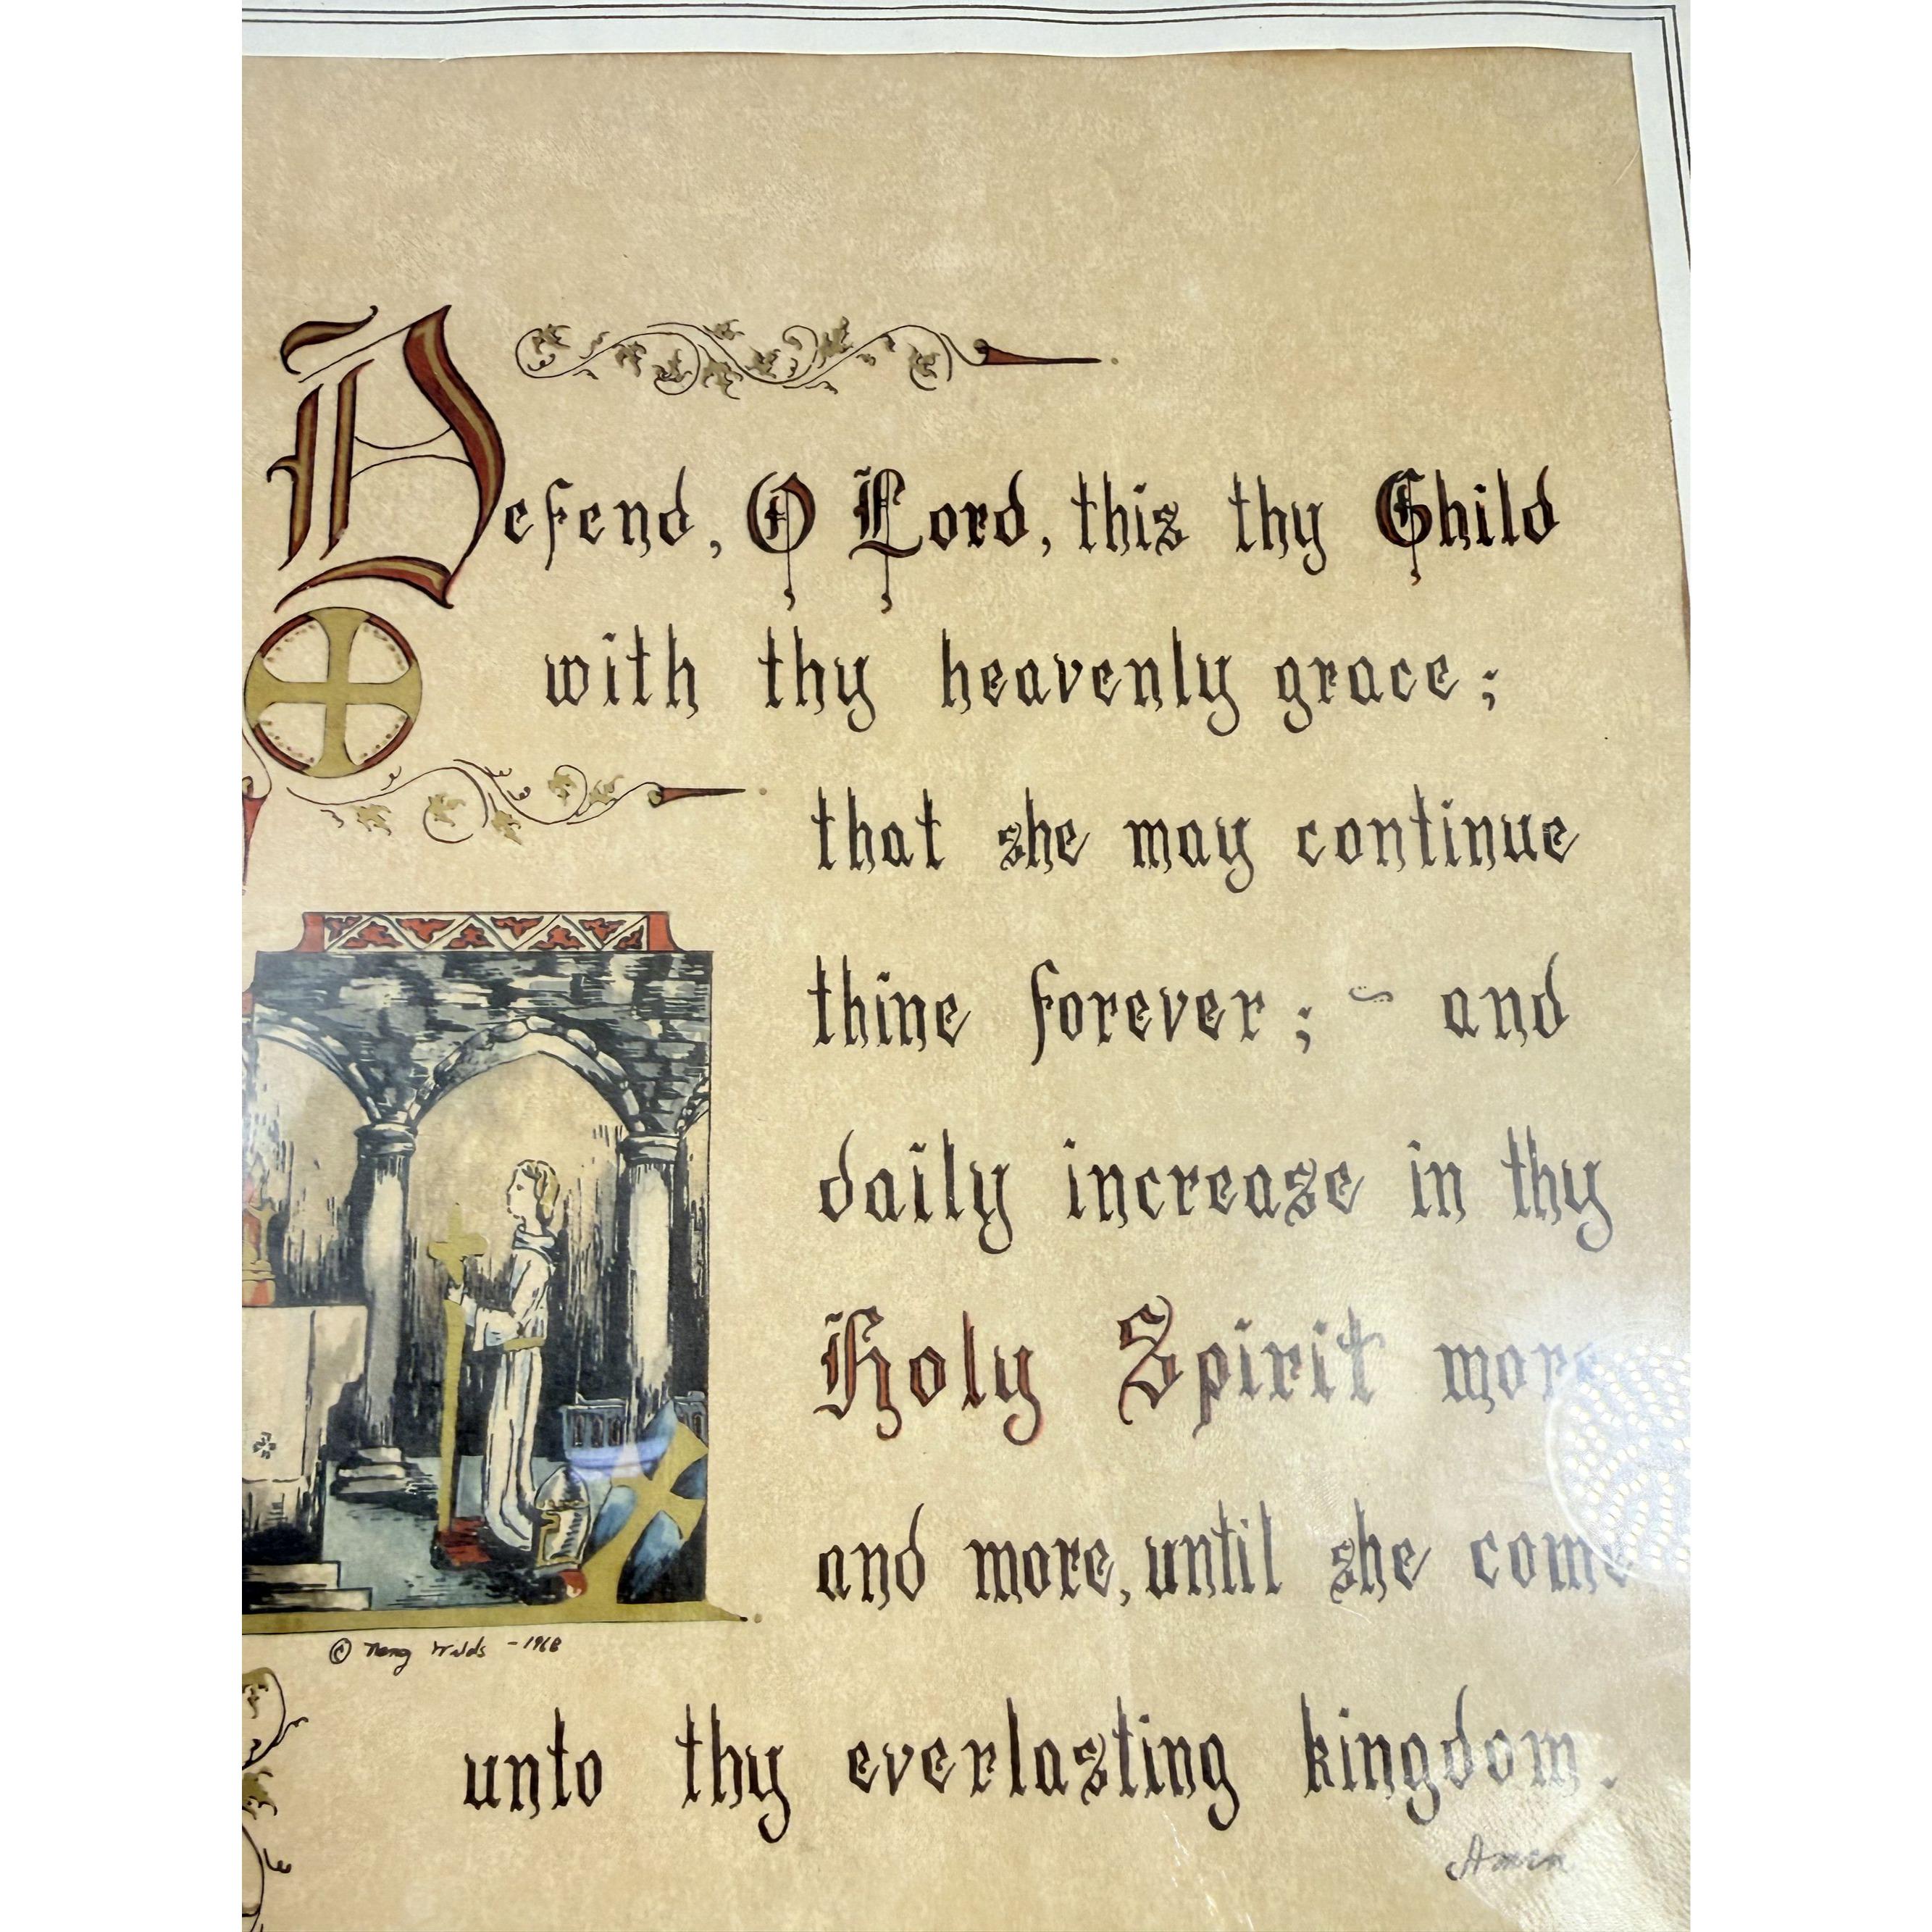 Defend, O Lord, this thy Child
with thy heavenly grace;
that she may continue
thine forever; ~ and
daily increase in thy
Holy Spirit more
and more, until she come
© Wilds - 1968
unto thy everlasting kingdom.
Amen